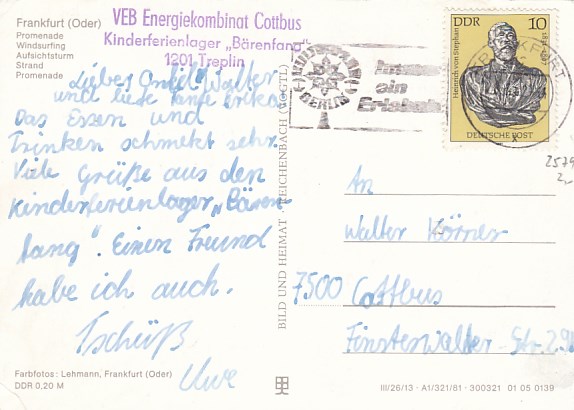 Frankfurt (Oder)
Promenade
Windsurfing
Aufsichtsturm
Strand
Promenade
VEB Energiekombinat Cottbus
Kinderferienlager „Bärenfang"
1201 Treplin
Lieber Onkel Walter
und liebe Tante Erika
Das Essen und
Trinken schmekt sehr.
Viele Grüße aus den
Kinderferienlager „Bären
fang". Einen Freund
habe ich auch.
Tschüß
Uwe
Farbfotos: Lehmann, Frankfurt (Oder)
DDR 0,20 M
BILD UND HEIMAT · REICHENBACH (VOGTL)
BERLIN
ein
Erlebnis
DDR 10
Heinrich von Stephan
DEUTSCHE POST
2579
2,-
An
Walter Körner
7500 Cottbus
Finsterwalder-Str.
III/26/13 · A1/321/81 · 300321 01 05 0139